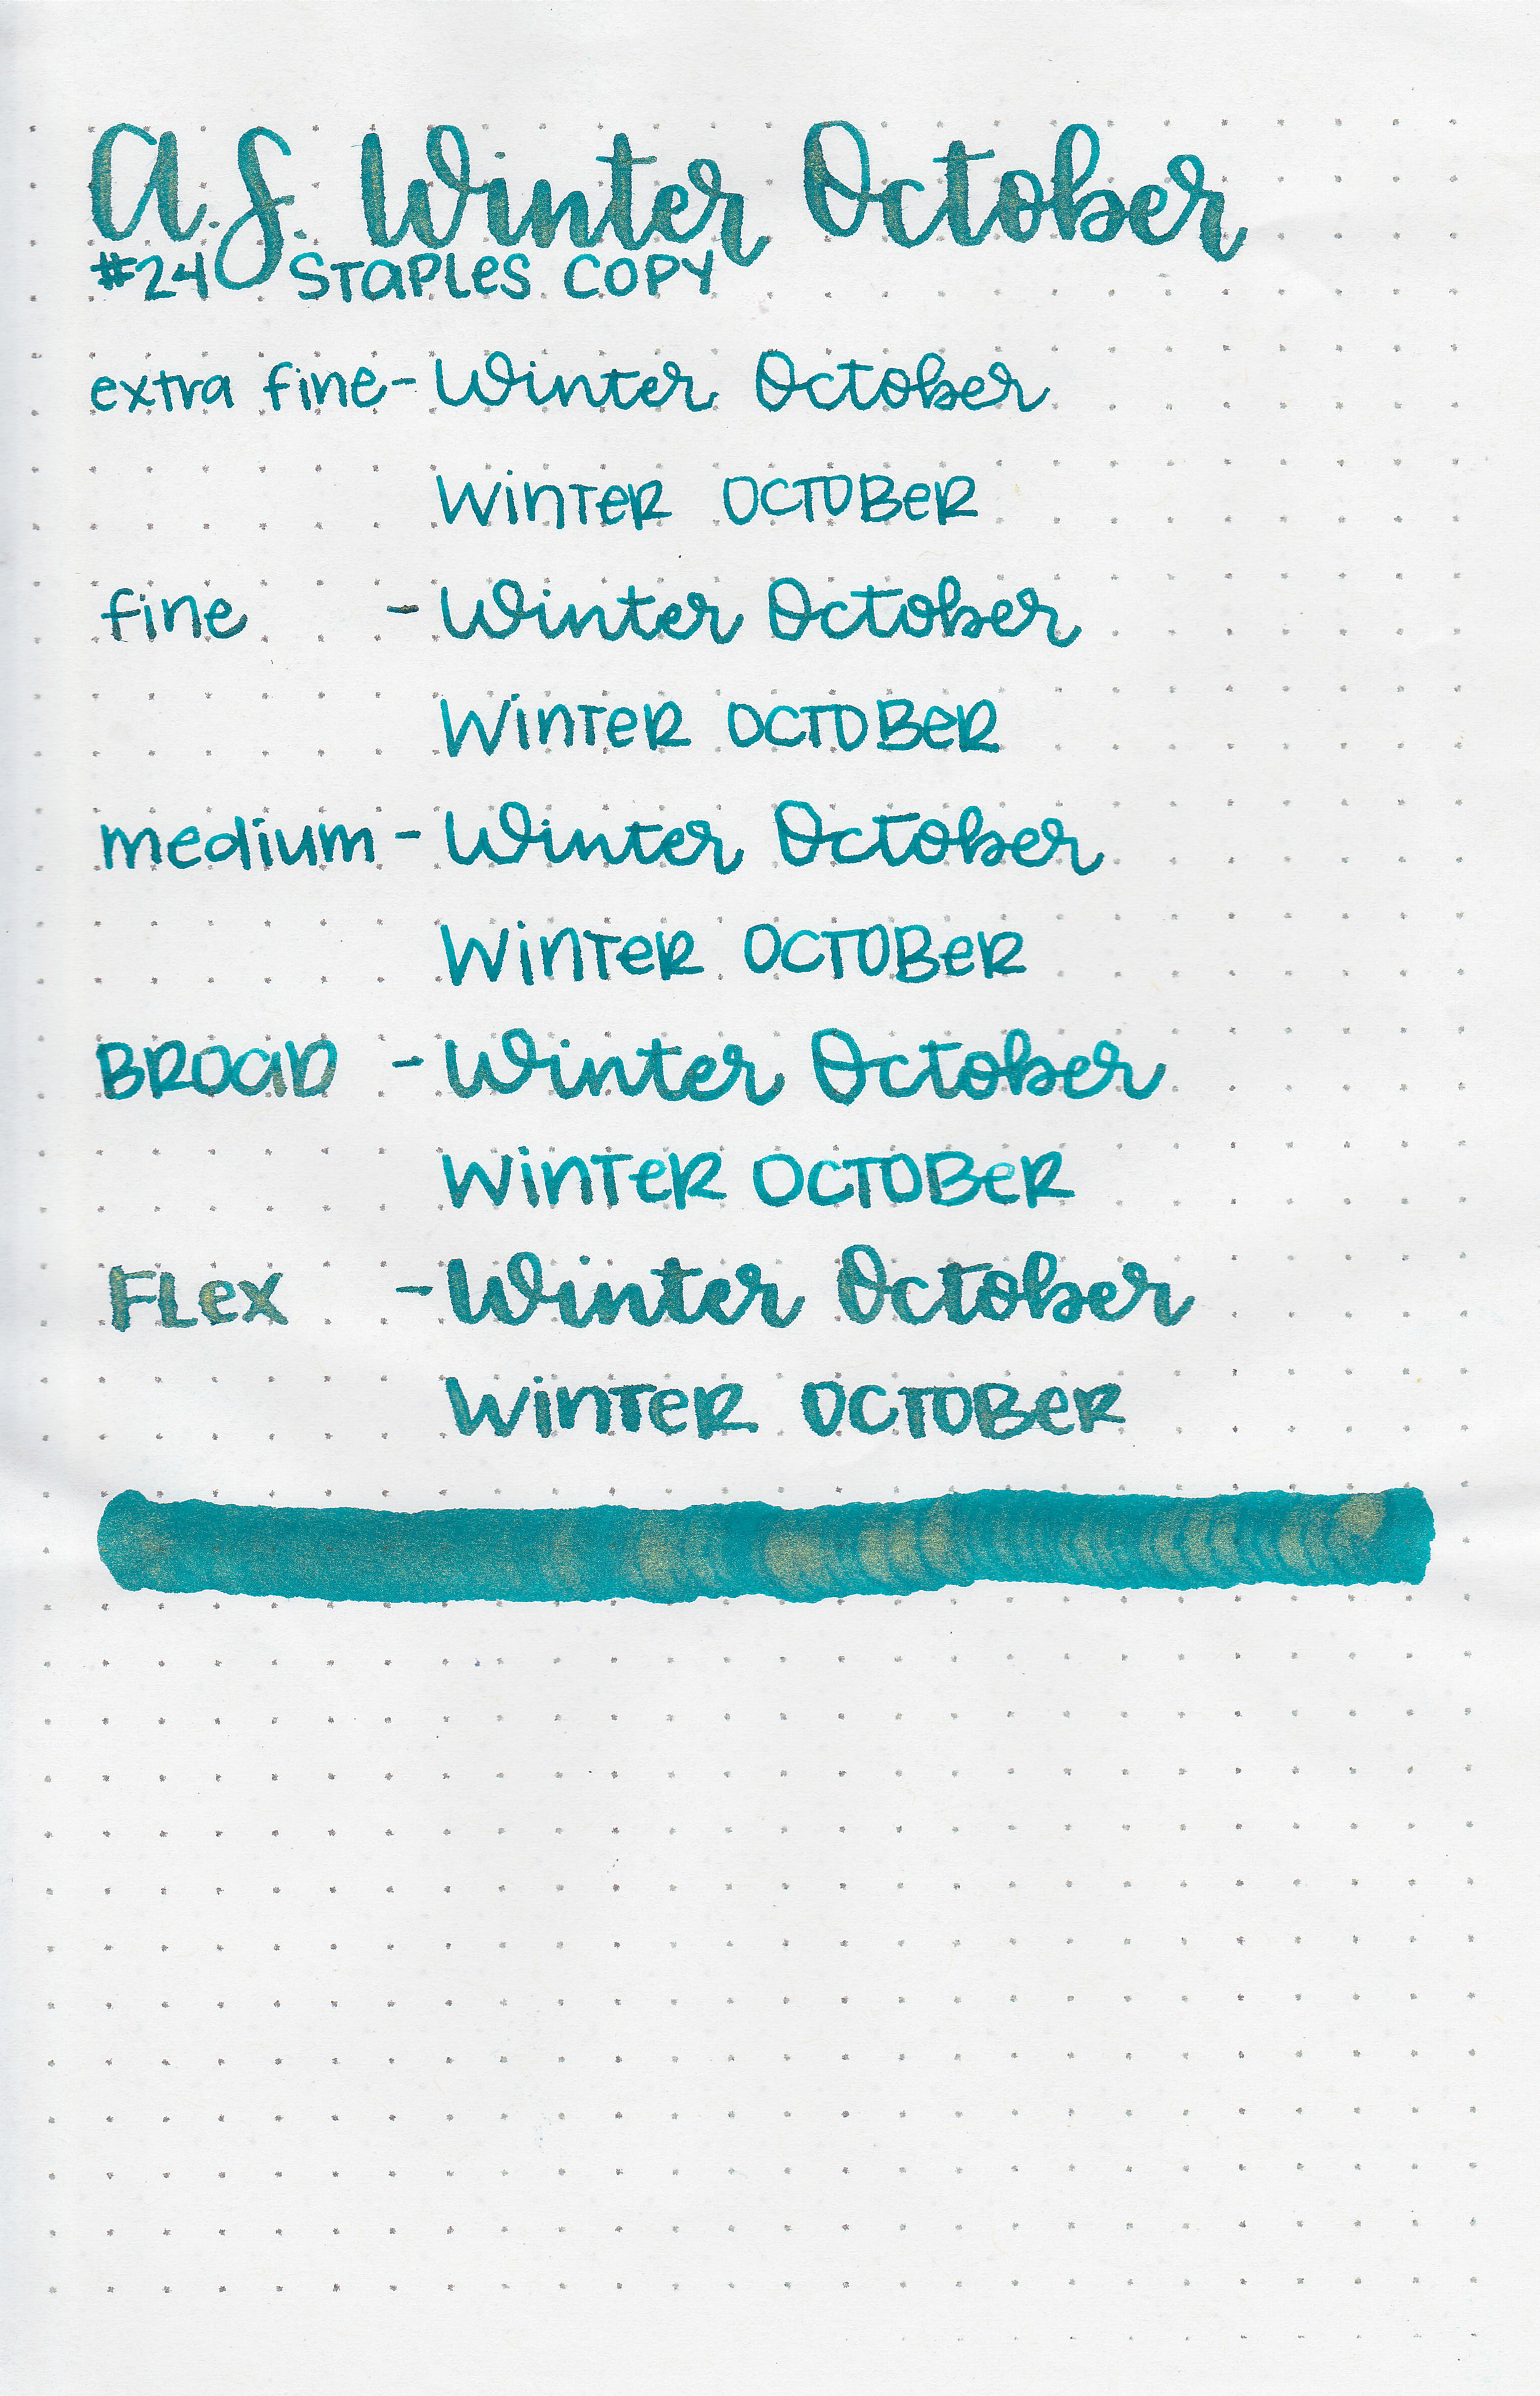 A.S. Winter October
#24 Staples Copy
extra fine - Winter October
WinTeR OCTOBeR
fine - Winter October
WinTeR OCTOBeR
medium - Winter October
WinTeR OCTOBeR
BROaD - Winter October
WinTeR OCTOBeR
FLex - Winter October
WinTeR OCTOBeR